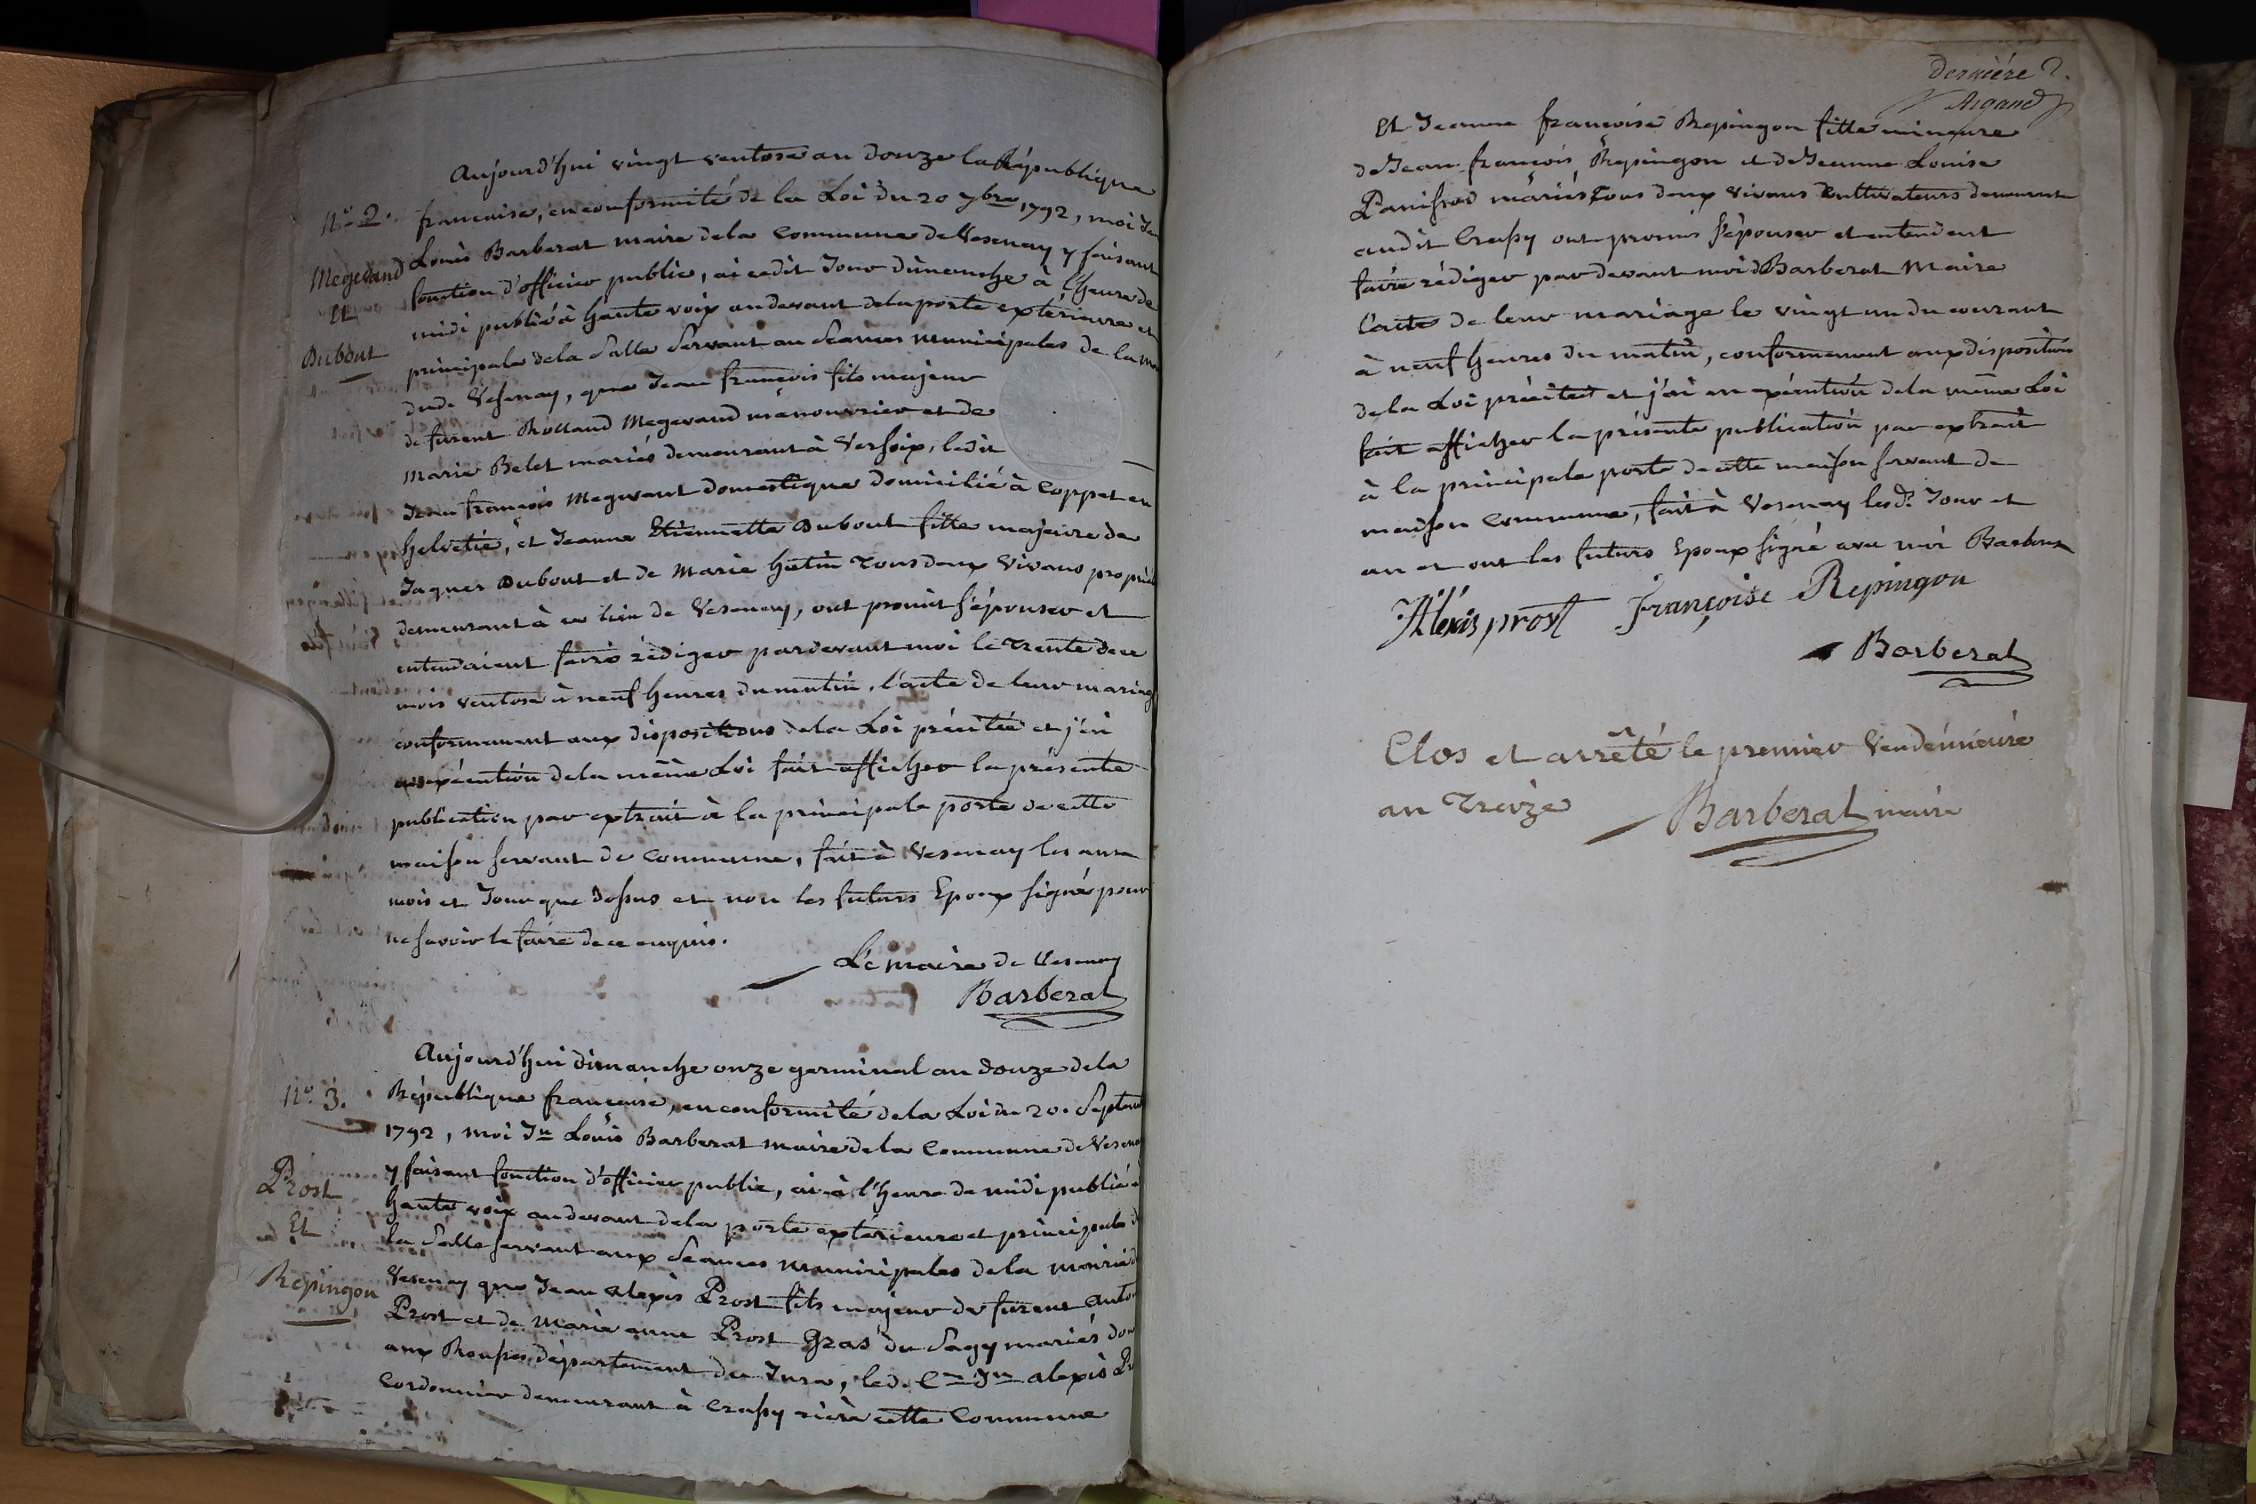 Aujourd'hui vingt ventose an douze la République
N.º 2. francaise, en conformité de la Loi du 20 7bre 1792, moi Jn
Megevand Louis Barberat maire de la Commune de Vesenay y faisant
Et fonction d'officier public, ai cedit Jour dimanche à l'heure de
Dubout midi publié à haute voix au devant de la porte extérieure et
principale de la Salle Servant au Seances municipales de la
dud. Vesenay, que Jean françois fils majeur
de furent Rolland Megevand manouvrier et de
Marie Belet mariés demeurant à Versoix, ledit
Jean françois Megevant domestique domicilié à Coppet en
helvetie, et Jeanne Etiennette Dubout fille majeure de
Jaques Dubout et de Marie hotin Tous deux Vivans
demeurant à ce lieu de Vesenay, ont promit s'épouser et
entendaient faire rédiger pardevant moi le Trente de ce
mois ventose à neuf heures du matin, l'acte de leur mariag
conformement aux dispositions de la Loi précitée et j'ai
en exécution de la même Loi fait afficher la présente
publication par extrait à la principale porte de cette
maison servant de Commune, fait à Vesenay les an
mois et Jour que dessus et non les futurs Epoux signés pour
ne savoir le faire de ce enquis.
Le maire de Vesenay
Barberat
Aujourd'hui dimanche onze germinal an douze de la
N.º 3. République francaise, en conformité de la Loi du 20. Septem
1792, moi Jn Louis Barberat maire de la Commune de Vesena
y faisant fonction d'officier public, ai à l'heure de midi publié à
Prost haute voix au devant de la porte extérieure et principale d
Et la Salle servant aux Seances municipales de la mairie d
Repingon Vesenay que Jean Alexis Prost fils majeur de furent Anto
Prost et de Marie anne Prost Gras du Sagy mariés dom
aux Rousses département du Jura, led. Cn Jn alexis Pr
Cordonnier demeurant à Crassy rière cette Commune
Derniére 2.
Argand
Et Jeanne françoise Repingon fille mineure
de Jean françois Repingon et de Jeanne Louise
Panissod mariés Tous deux Vivans Cultivateurs demeurant
audit Crassy ont promis s'épouser et entendent
faire rédiger par devant moi d Barberat Maire
l'acte de leur mariage le vingt un du courant
à neuf heures du matin, conformement aux disposition
de la Loi précitée et j'ai en exécution de la même Loi
fait afficher la présente publication par extrait
à la principale porte de cette maison servant de
maison Commune, fait à Vesenay lesd. Jour et
an et ont les futurs Epoux signé avec moi Barberat
JAlexis prost Françoise Repingon
Barberat
Clos et arrêté le premier Vendémieire
an Treize Barberat maire